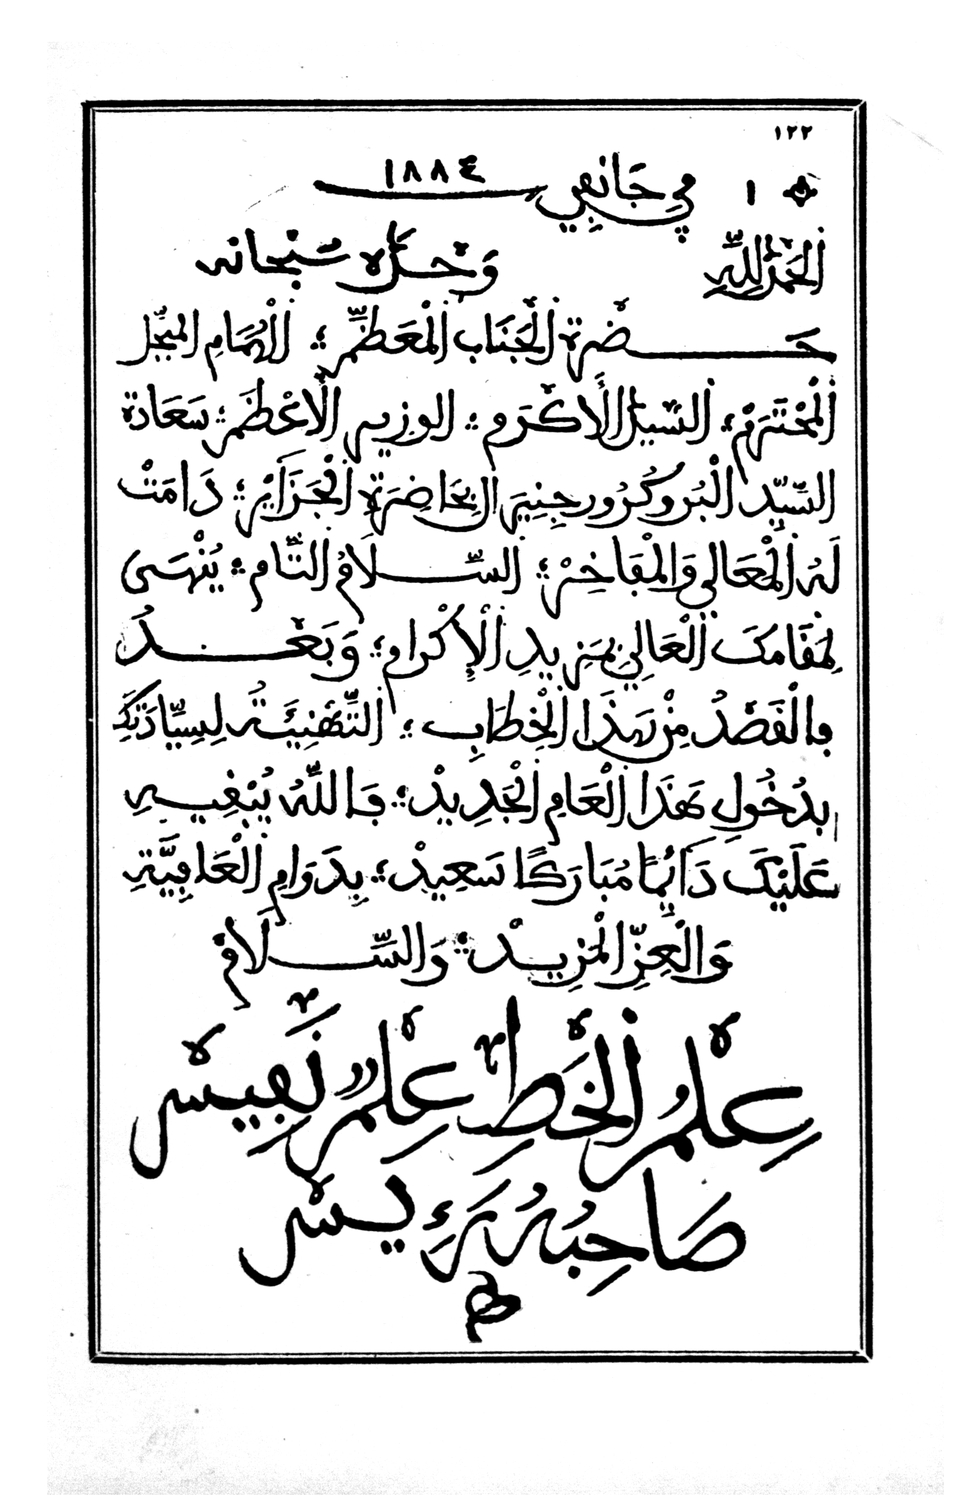 ١٢٢
١ في جَانفِي ١٨٨٤
الحَمْدُ لِلّهِ وَحْدَهْ سُبْحانه
حَضْرة الْجَنَاب الْمُعَظَّمِ؛ الْهُمَامِ المبجّل
الْمُحْتَرَمْ؛ السَيِّدْ الْأَكْرَمِ؛ الوزيرِ الْأَعْظَمْ؛ سَعَادة
السَّيِّد الْبُرُوكُرُورجِنِيرَالْ بِحَاضِرَةِ الْجَزَايِرْ؛ دَامَتْ
لَهُ الْمَعَالِي وَالْمَفَاخِرْ؛ السَّلَامُ التَّام؛ يُنْهَى
لِمَقَامِكَ الْعَالِي بِمَزِيدِ الْإِكْرام؛ وَبَعْدُ
فالْقَصْدُ مِنْ هَذَا الْخِطَابِ؛ التَّهْنِيَّةُ لِسِيَّادَتِكَ
بِدُخُولِ هَذَا الْعَامِ الْجَدِيدْ؛ فَاللّهُ يُبْقِيهِ
عَلَيْكَ دَائِمًا مُبَارَكًا سَعِيدْ؛ بِدَوَامِ الْعَافِيَّةِ
وَالْعِزِّ الْمَزِيدْ؛ وَالسَّلَامْ
عِلْمُ الْخَطِّ عِلْمٌ نَّفِيسْ
صَاحِبُهُ رَءِيسْ